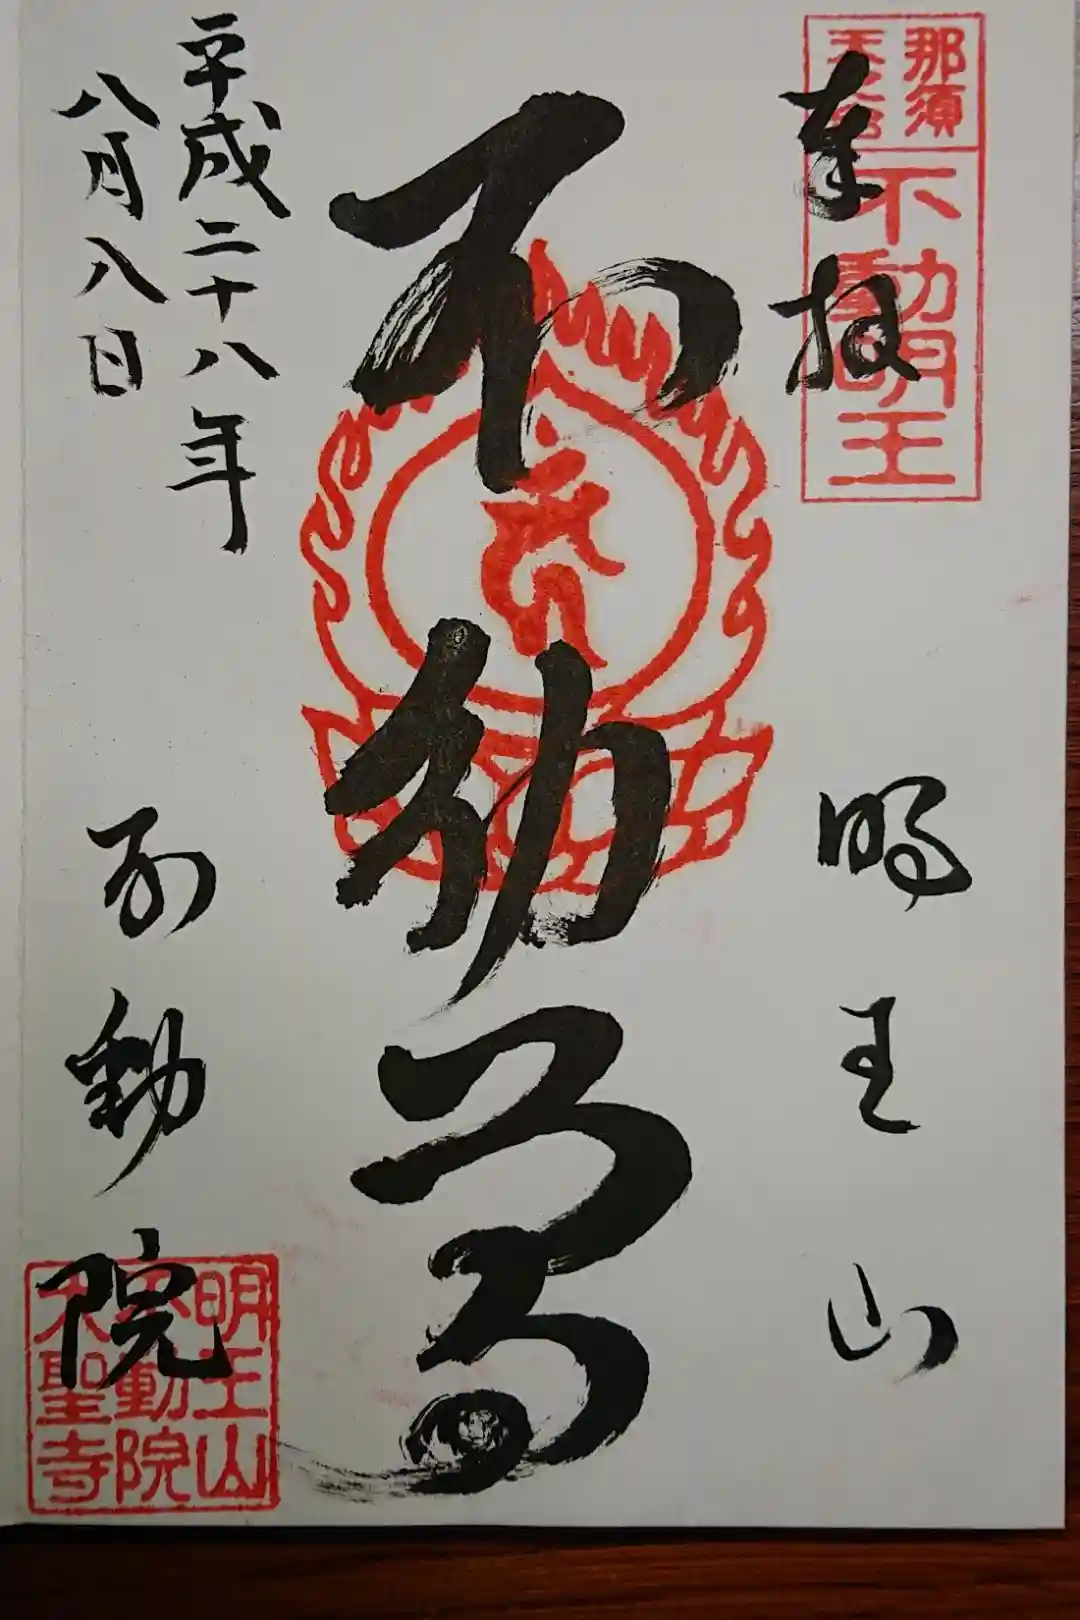 奉拝
明王山
那須
不動明王
不動尊
平成二十八年
八月八日
不動院
明王山
不動院
大聖寺